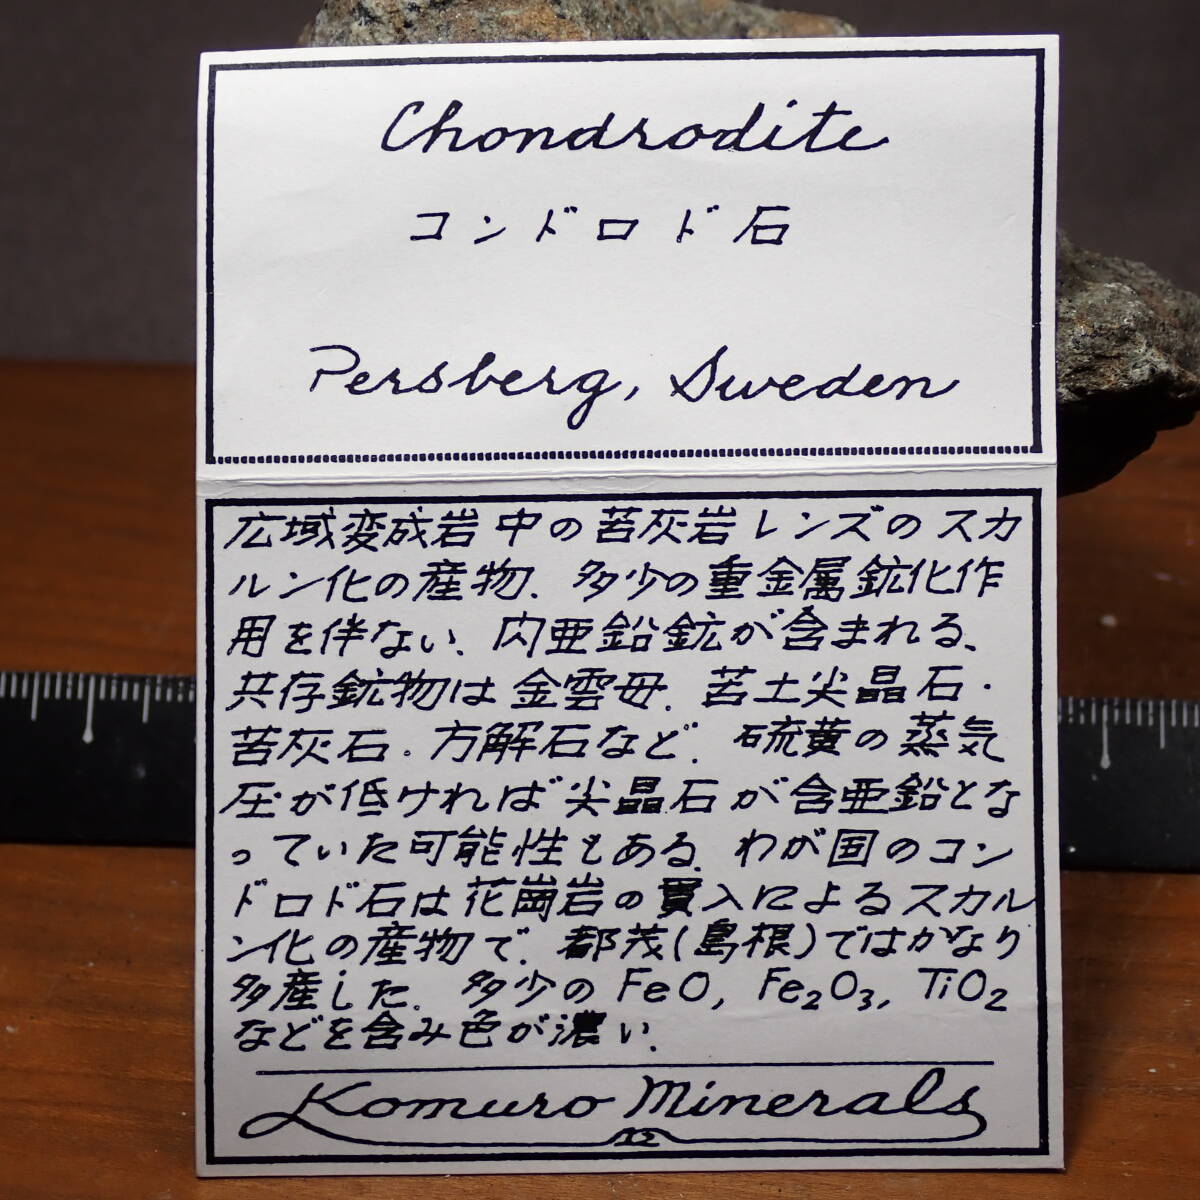 Chondrodite
コンドロド石
Persberg, Sweden
広域変成岩中の苦灰岩レンズのスカ
ルン化の産物. 多少の重金属鉱化作
用を伴ない、閃亜鉛鉱が含まれる、
共存鉱物は金雲母. 苦土尖晶石・
苦灰石・方解石など. 硫黄の蒸気
圧が低ければ尖晶石が含亜鉛とな
っていた可能性もある. わが国のコン
ドロド石は花崗岩の貫入によるスカル
ン化の産物で. 都茂(島根)ではかなり
多産した. 多少のFeO, Fe₂O₃, TiO₂
などを含み色が濃い.
Komuro Minerals